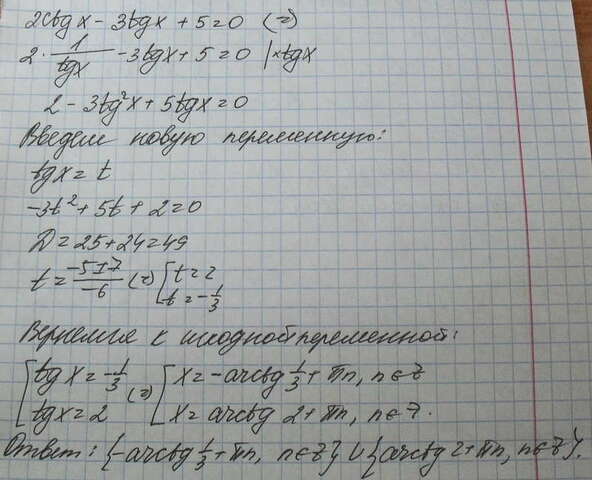 2ctgx - 3tgx + 5 = 0 (=)
2 · 1/tgx - 3tgx + 5 = 0 | × tgx
2 - 3tg²x + 5tgx = 0
Введем новую переменную:
tgx = t
-3t² + 5t + 2 = 0
D = 25 + 24 = 49
t = -5±7/-6 (=) [ t = 2
t = -1/3
Вернемся к исходной переменной:
[ tgx = -1/3 (=) [ x = -arctg 1/3 + πn, n∈Z
tgx = 2 x = arctg 2 + πn, n∈Z.
Ответ: {-arctg 1/3 + πn, n∈Z} ∪ {arctg 2 + πn, n∈Z}.